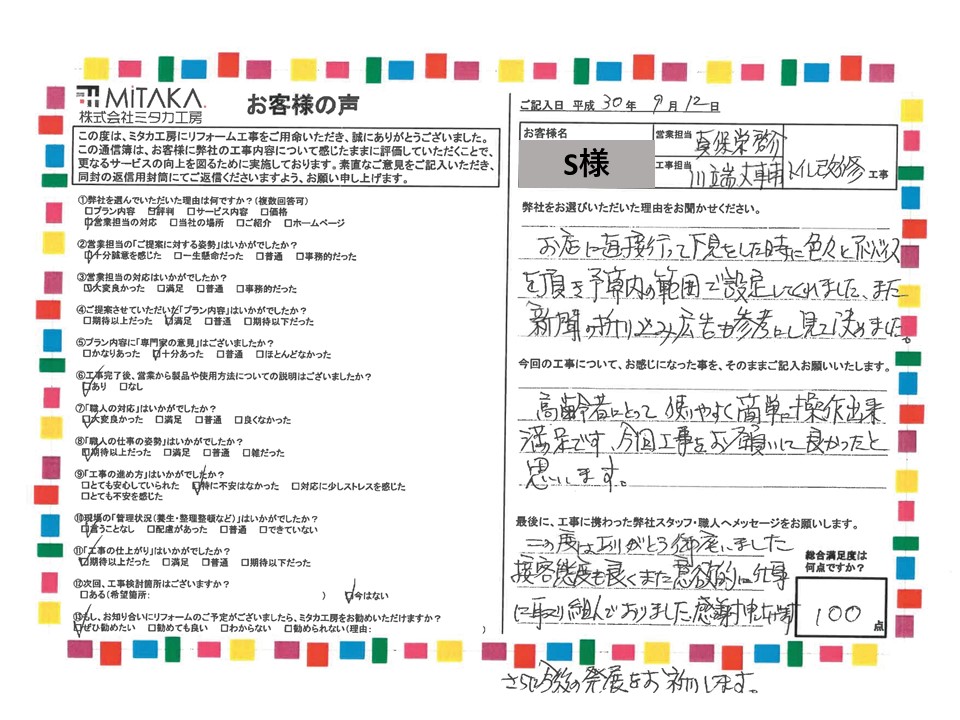 MiTAKA
株式会社ミタカ工房
お客様の声
この度は、ミタカ工房にリフォーム工事をご用命いただき、誠にありがとうございました。
この通信簿は、お客様に弊社の工事内容について感じたままに評価していただくことで、
更なるサービスの向上を図るために実施しております。素直なご意見をご記入いただき、
同封の返信用封筒にてご返信くださいますよう、お願い申し上げます。
①弊社を選んでいただいた理由は何ですか?(複数回答可)
□プラン内容 ☑評判 □サービス内容 □価格
☑営業担当の対応 □当社の場所 □ご紹介 □ホームページ
②営業担当の「ご提案に対する姿勢」はいかがでしたか?
☑十分誠意を感じた □一生懸命だった □普通 □事務的だった
③営業担当の対応はいかがでしたか?
☑大変良かった □満足 □普通 □事務的だった
④ご提案させていただいた「プラン内容」はいかがでしたか?
□期待以上だった ☑満足 □普通 □期待以下だった
⑤プラン内容に「専門家の意見」はございましたか?
□かなりあった ☑十分あった □普通 □ほとんどなかった
⑥工事完了後、営業から製品や使用方法についての説明はございましたか?
☑あり □なし
⑦「職人の対応」はいかがでしたか?
☑大変良かった □満足 □普通 □良くなかった
⑧「職人の仕事の姿勢」はいかがでしたか?
☑期待以上だった □満足 □普通 □雑だった
⑨「工事の進め方」はいかがでしたか?
□とても安心していられた ☑特に不安はなかった □対応に少しストレスを感じた
□とても不安を感じた
⑩現場の「管理状況(養生・整理整頓など)」はいかがでしたか?
☑言うことなし □配慮があった □普通 □できていない
⑪「工事の仕上がり」はいかがでしたか?
☑期待以上だった □満足 □普通 □期待以下だった
⑫次回、工事検討箇所はございますか?
□ある(希望箇所: ) ☑今はない
⑬もし、お知り合いにリフォームのご予定がございましたら、ミタカ工房をお勧めいただけますか?
☑ぜひ勧めたい □勧めても良い □わからない □勧められない(理由: )
ご記入日 平成 30年 9月 12日
お客様名
S様
営業担当 真保栄啓介
工事担当 川端大輔
トイレ改修 工事
弊社をお選びいただいた理由をお聞かせください。
お店に直接行って下見をした時に色々とアドバイス
を頂き予算内の範囲で設定してくれました、また
新聞の折り込み広告も参考にし見て決めました。
今回の工事について、お感じになった事を、そのままご記入お願いします。
高齢者にとって使いやすく簡単に操作出来
満足です、今回工事をお願いして良かったと
思いします。
最後に、工事に携わった弊社スタッフ・職人へメッセージをお願いします。
この度はありがとう御座いました
接客態度も良くまた意欲的に仕事
に取り組んでおりました感謝申し上げます
さらに今後の発展をお祈りします。
総合満足度は
何点ですか?
100点